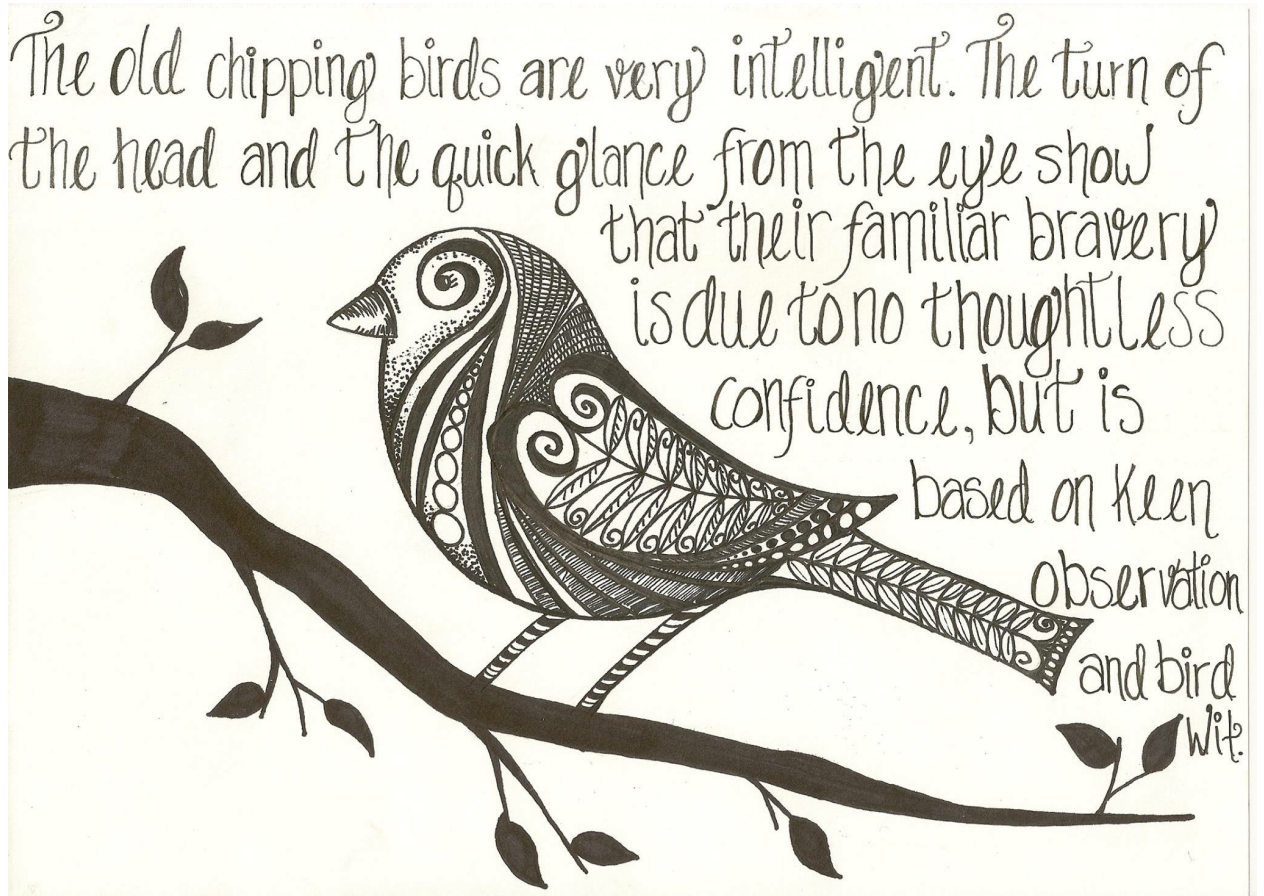 The old chipping birds are very intelligent. The turn of
the head and the quick glance from the eye show
that their familiar bravery
is due to no thoughtless
confidence, but is
based on Keen
observation
and bird
Wit.